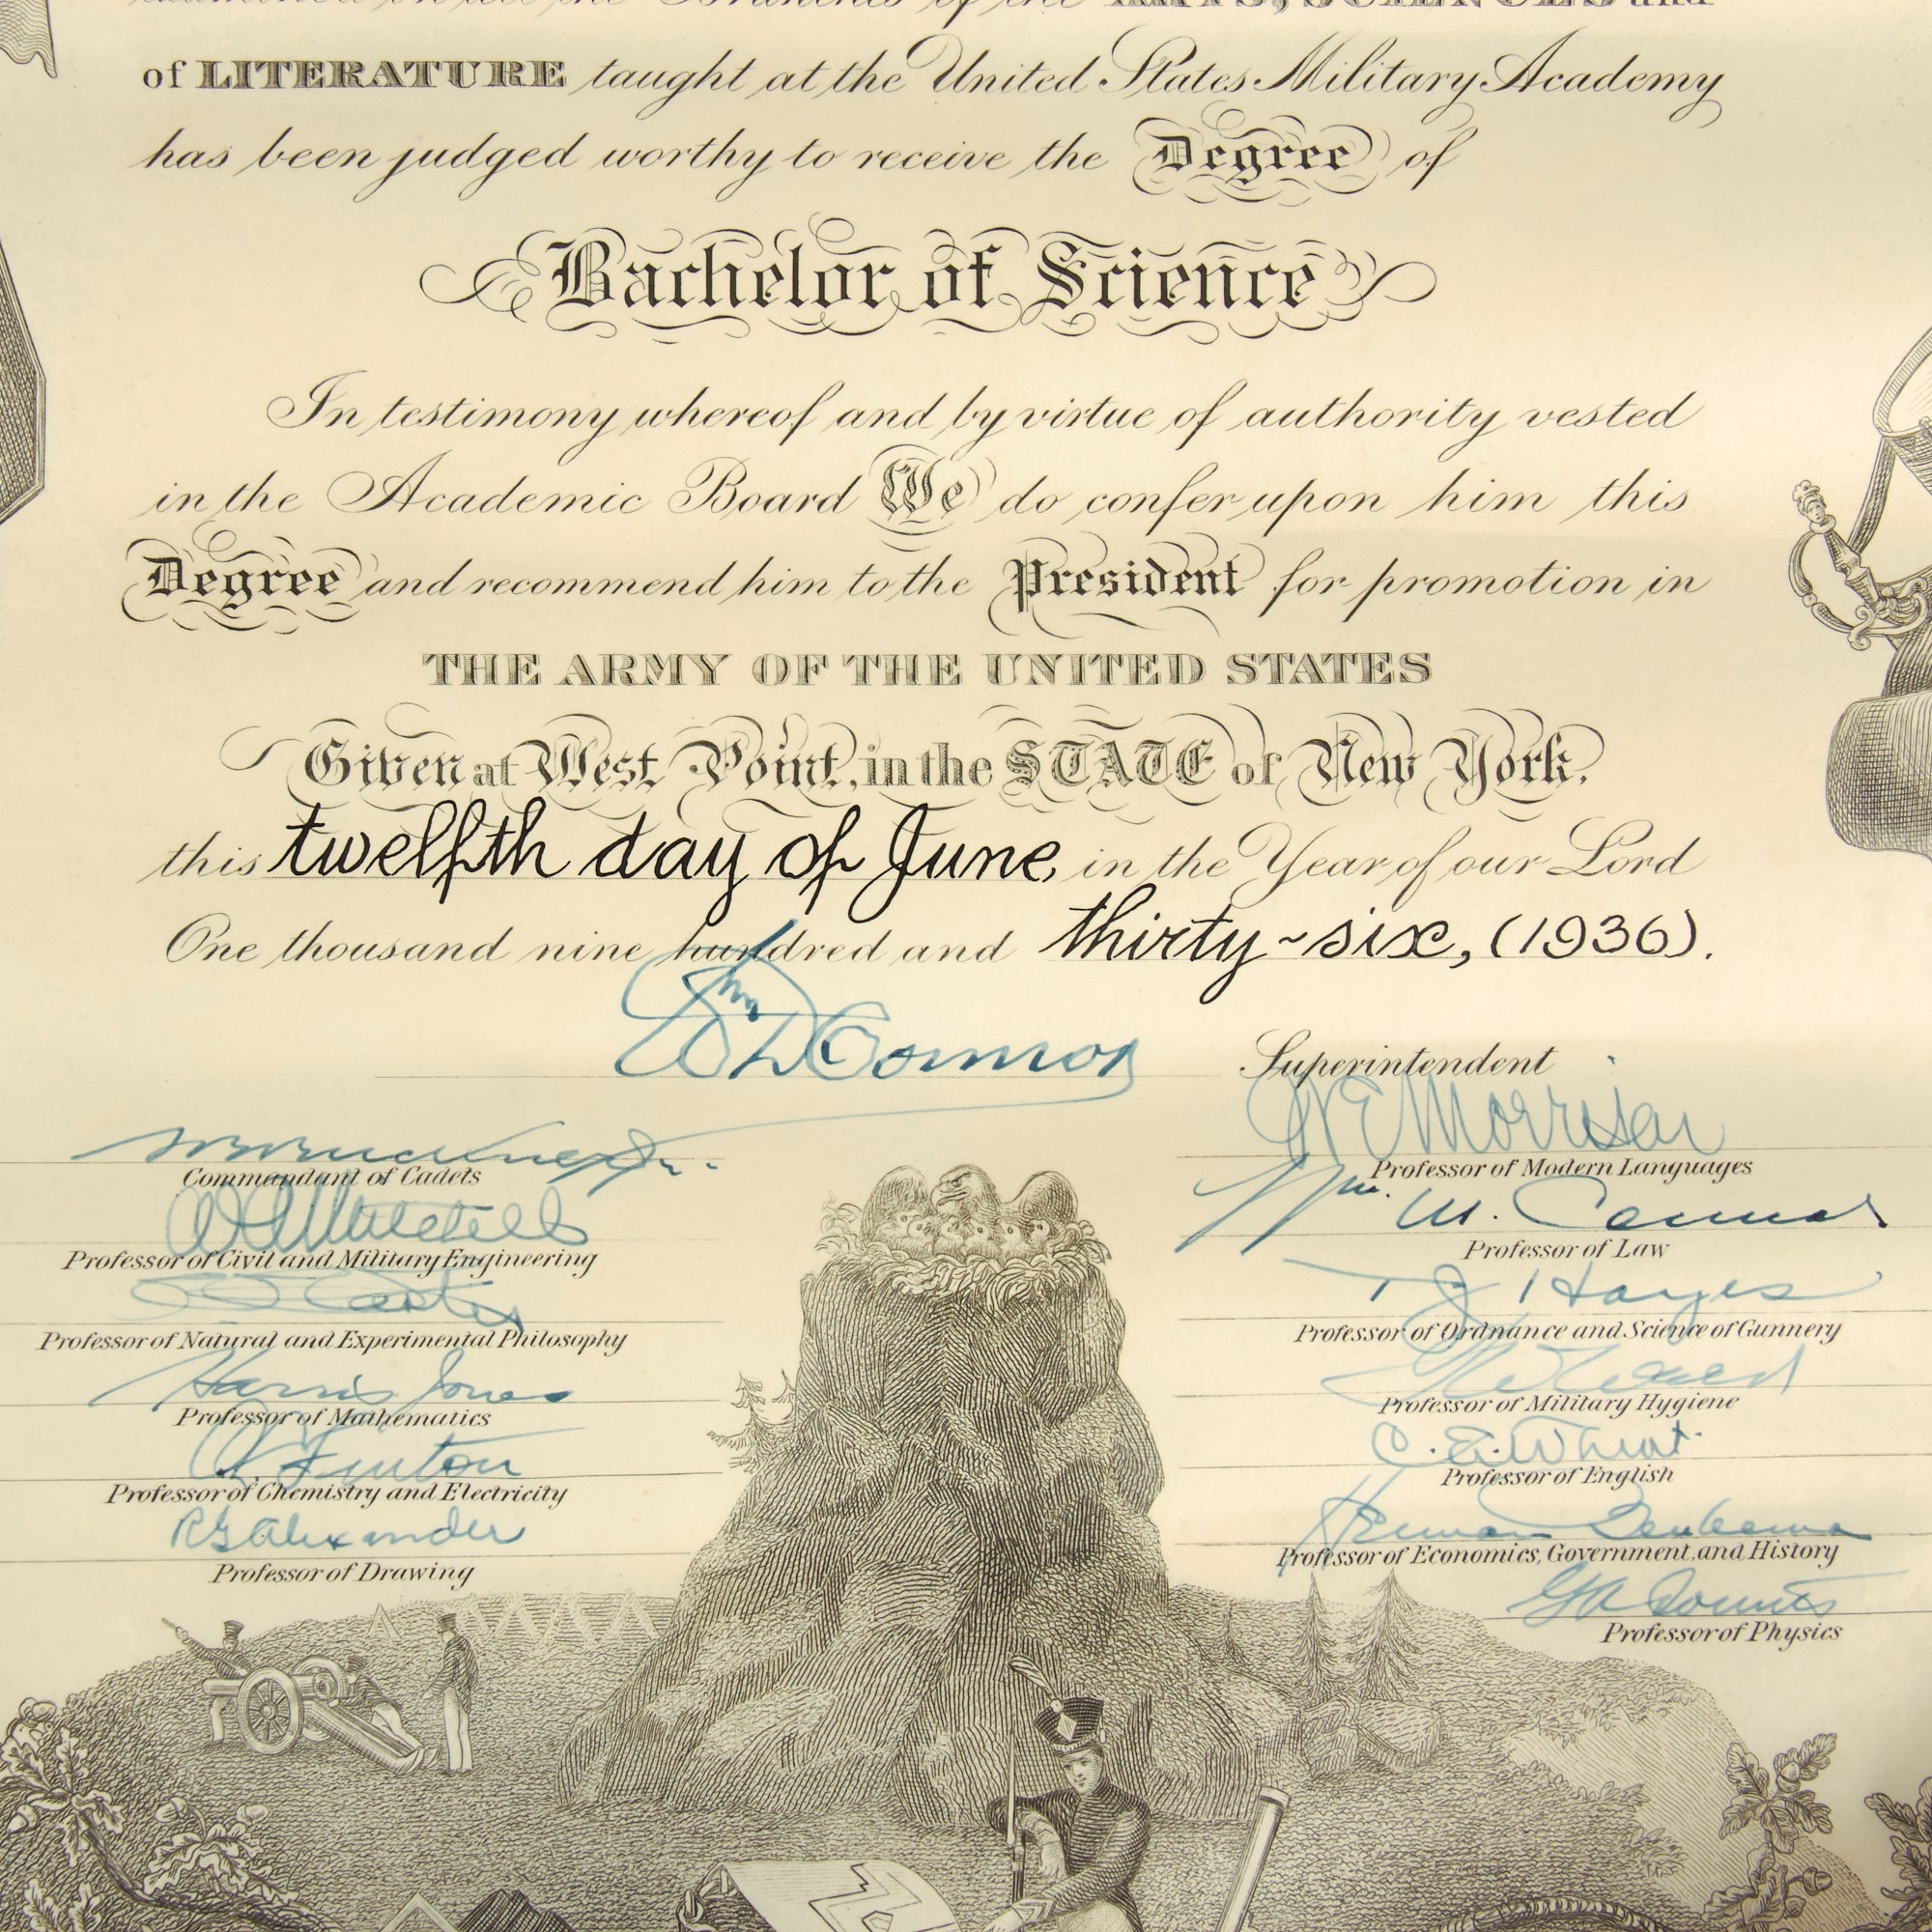 of the ARTS, SCIENCES and
of LITERATURE taught at the United States Military Academy
has been judged worthy to receive the Degree of
Bachelor of Science
In testimony whereof and by virtue of authority vested
in the Academic Board We do confer upon him this
Degree and recommend him to the President for promotion in
THE ARMY OF THE UNITED STATES
Given at West Point, in the STATE of New York,
this twelfth day of June, in the Year of our Lord
One thousand nine hundred and thirty-six, (1936).
Wm D Connor
Superintendent
Commandant of Cadets
W A Mitchell
Professor of Civil and Military Engineering
C C Carter
Professor of Natural and Experimental Philosophy
Harris Jones
Professor of Mathematics
C. Fenton
Professor of Chemistry and Electricity
R G Alexander
Professor of Drawing
W E Morrison
Professor of Modern Languages
Wm. M. Connor
Professor of Law
T J Hayes
Professor of Ordnance and Science of Gunnery
Professor of Military Hygiene
C. L. Wheat
Professor of English
Herman Beukema
Professor of Economics, Government, and History
G A Counts
Professor of Physics